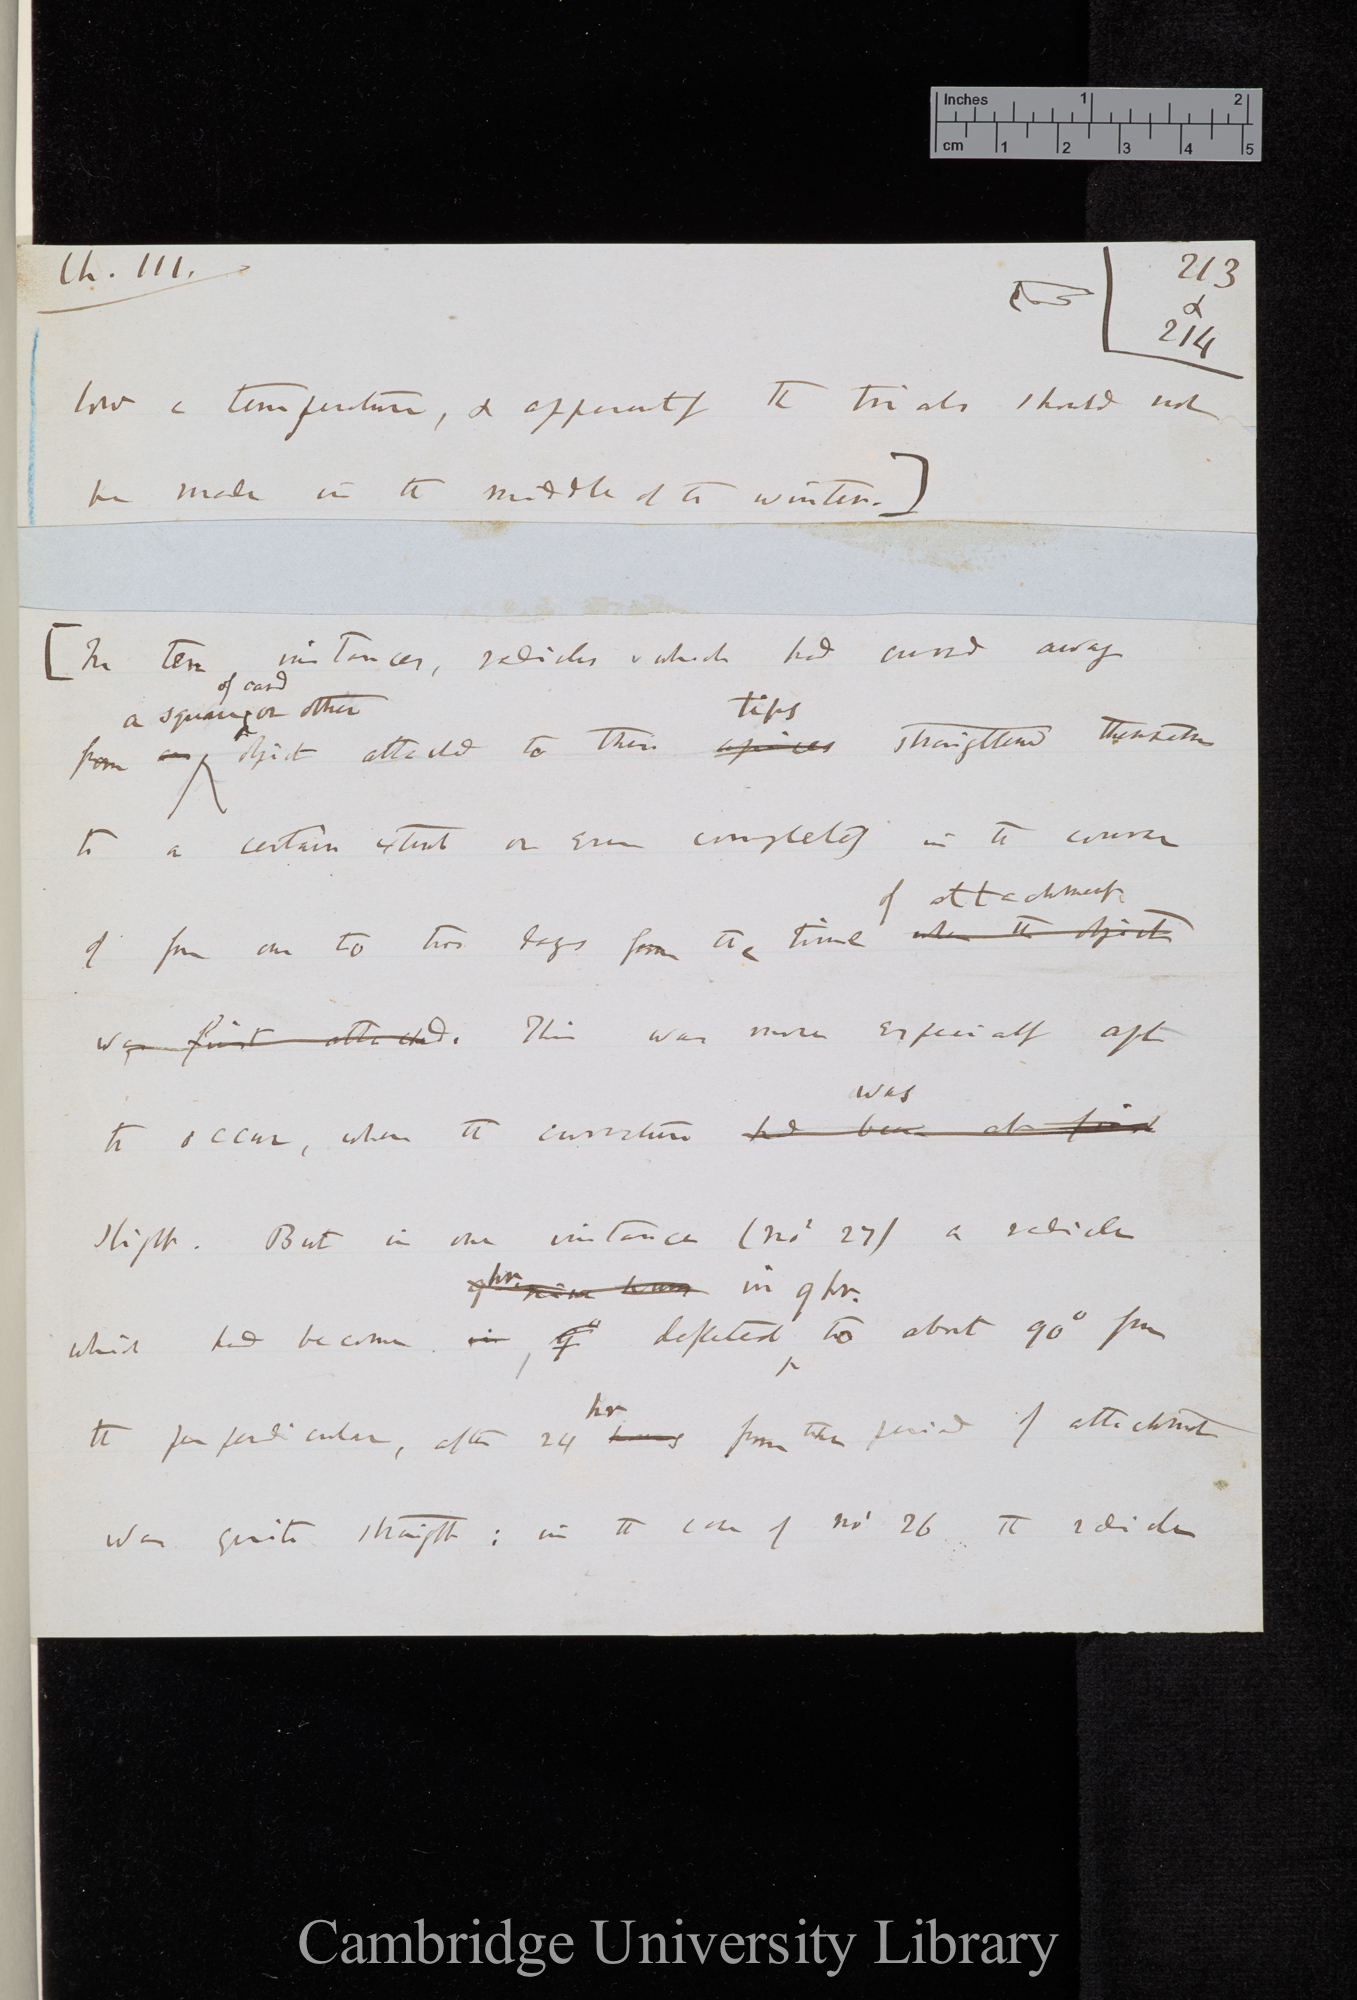 Inches 1 2
cm 1 2 3 4 5
Ch. III.
213
&
214
low a temperature, & apparently the trials should not
be made in the middle of the winter.]
[In ten instances, radicles which had curved away
of card
a square or other
tips
from an object attached to their apices straightened themselves
to a certain extent or even completely in the course
of attachment
of from one to two days from the time when the object
was first attached. This was more especially apt
was
to occur, when the curvature had been at first
slight. But in one instance (no 27) a radicle
9 hr. nine hours in 9 hr.
which had become in 9° deflected to about 90° from
hr
the perpendicular, after 24 hours from the period of attachment
was quite straight; in the case of no 26 the radicle
Cambridge University Library